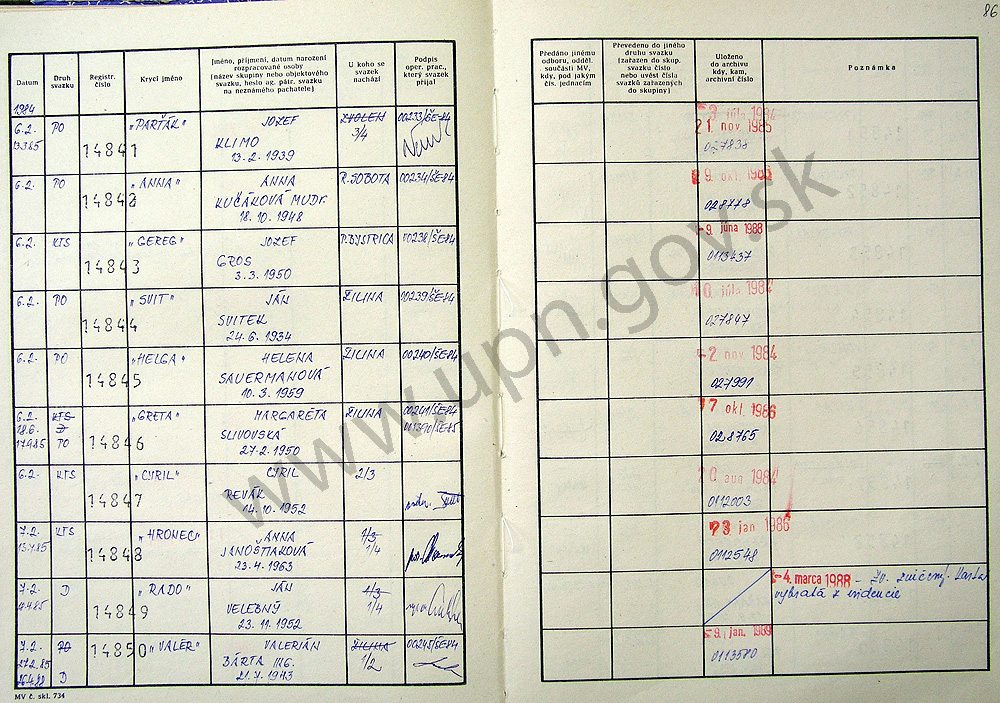 86
Datum
Druh svazku
Registr. číslo
Krycí jméno
Jméno, příjmení, datum narození rozpracované osoby (název skupiny nebo objektového svazku, heslo ag. pátr. svazku na neznámého pachatele)
U koho se svazek nachází
Podpis oper. prac., který svazek přijal
Předáno jinému odboru, odděl. součásti MV, kdy, pod jakým čís. jednacím
Převedeno do jiného druhu svazku (zařazen do skup. svazku číslo nebo uvést čísla svazků zařazených do skupiny)
Uloženo do archivu kdy, kam, archivní číslo
Poznámka
1984
6.2. PO 14841 "PARTÁK" JOZEF ZVOLEN 00233/ŠE-84
13.3.85 KLIMO 3/4
13.2.1939
21. nov 1985
027838
6.2. PO 14842 "ANNA" ANNA R. SOBOTA 00234/ŠE-84
KUČÁKOVÁ MUDr.
18.10.1948
9. okt. 1986
028778
6.2. KTS 14843 "GEREG" JOZEF P. BYSTRICA 00238/ŠE-84
GROS
3.3.1950
-9. júna 1988
0113437
6.2. PO 14844 "SVIT" JÁN ŽILINA 00239/ŠE-84
SVITEK
24.6.1934
júla 1984
027847
6.2. PO 14845 "HELGA" HELENA ŽILINA 00240/ŠE-84
SAUERMANOVÁ
10.3.1959
-2 nov 1984
027991
6.2. KTS 14846 "GRETA" MARGARÉTA ŽILINA 00241/ŠE-84
18.6. D SLIVOVSKÁ
17.9.85 PO 27.2.1950
17 okt. 1986
028765
6.2. KTS 14847 "CYRIL" CYRIL 2/3
REVÁK
14.10.1952
20 aug 1984
0112003
7.2. KTS 14848 "HRONEC" ANNA 1/3
JANOŠŤIAKOVÁ 1/4
23.4.1963
23 jan 1986
0112548
7.2. D 14849 "RADO" JÁN 1/3
VELEBNÝ 1/4
23.11.1952
-4. marca 1988 - Zv. zničený. Karta
vybratá z evidencie
7.2. PO 14850 "VALÉR" VALERIÁN ŽILINA 00245/ŠE-84
27.2.85 BÁRTA ING. 1/2
26.4.88 D 21.7.1943
-9. jan. 1989
0113580
MV č. skl. 734
www.upn.gov.sk